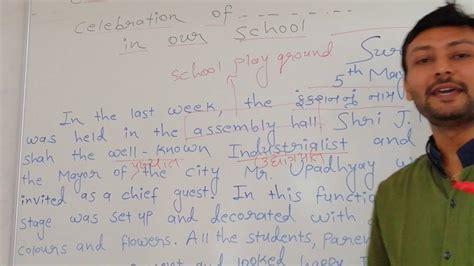 Celebration of - - - - - - - -
in our School
school play ground
Sur
5th May
In the last week, the ફંકશનનું નામ
was held in the assembly hall. Shri J.
Shah the well-known Industrialist and
પ્રખ્યાત ઉદ્યોગપતિ
the Mayor of the city Mr. Upadhyay
invited as a chief guest. In this function
stage was set up and decorated with
colours and flowers. All the students, paren
and looked happy